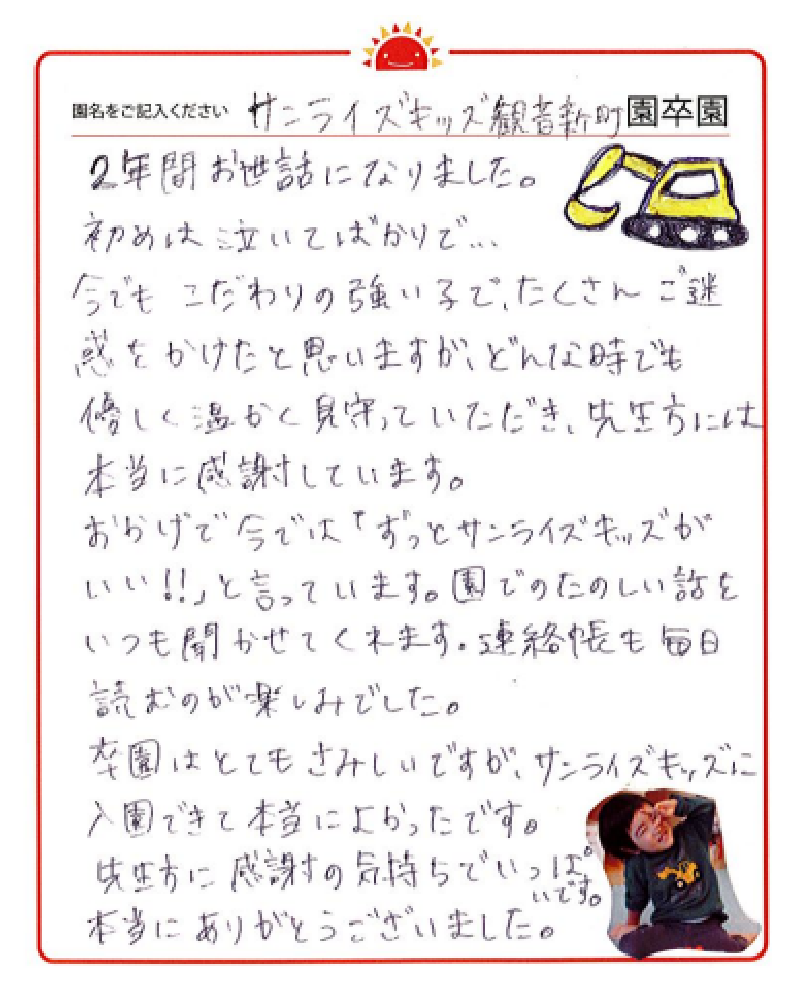 園名をご記入ください サンライズキッズ観音新町園卒園
2年間お世話になりました。
初めは泣いてばかりで…
今でもこだわりの強い子で、たくさんご迷
惑をかけたと思いますが、どんな時でも
優しく温かく見守っていただき、先生方には
本当に感謝しています。
おかげで今では「ずっとサンライズキッズが
いい!!」と言っています。園でのたのしい話を
いつも聞かせてくれます。連絡帳も毎日
読むのが楽しみでした。
卒園はとてもさみしいですが、サンライズキッズに
入園できて本当によかったです。
先生方に感謝の気持ちでいっぱ
いです。
本当にありがとうございました。